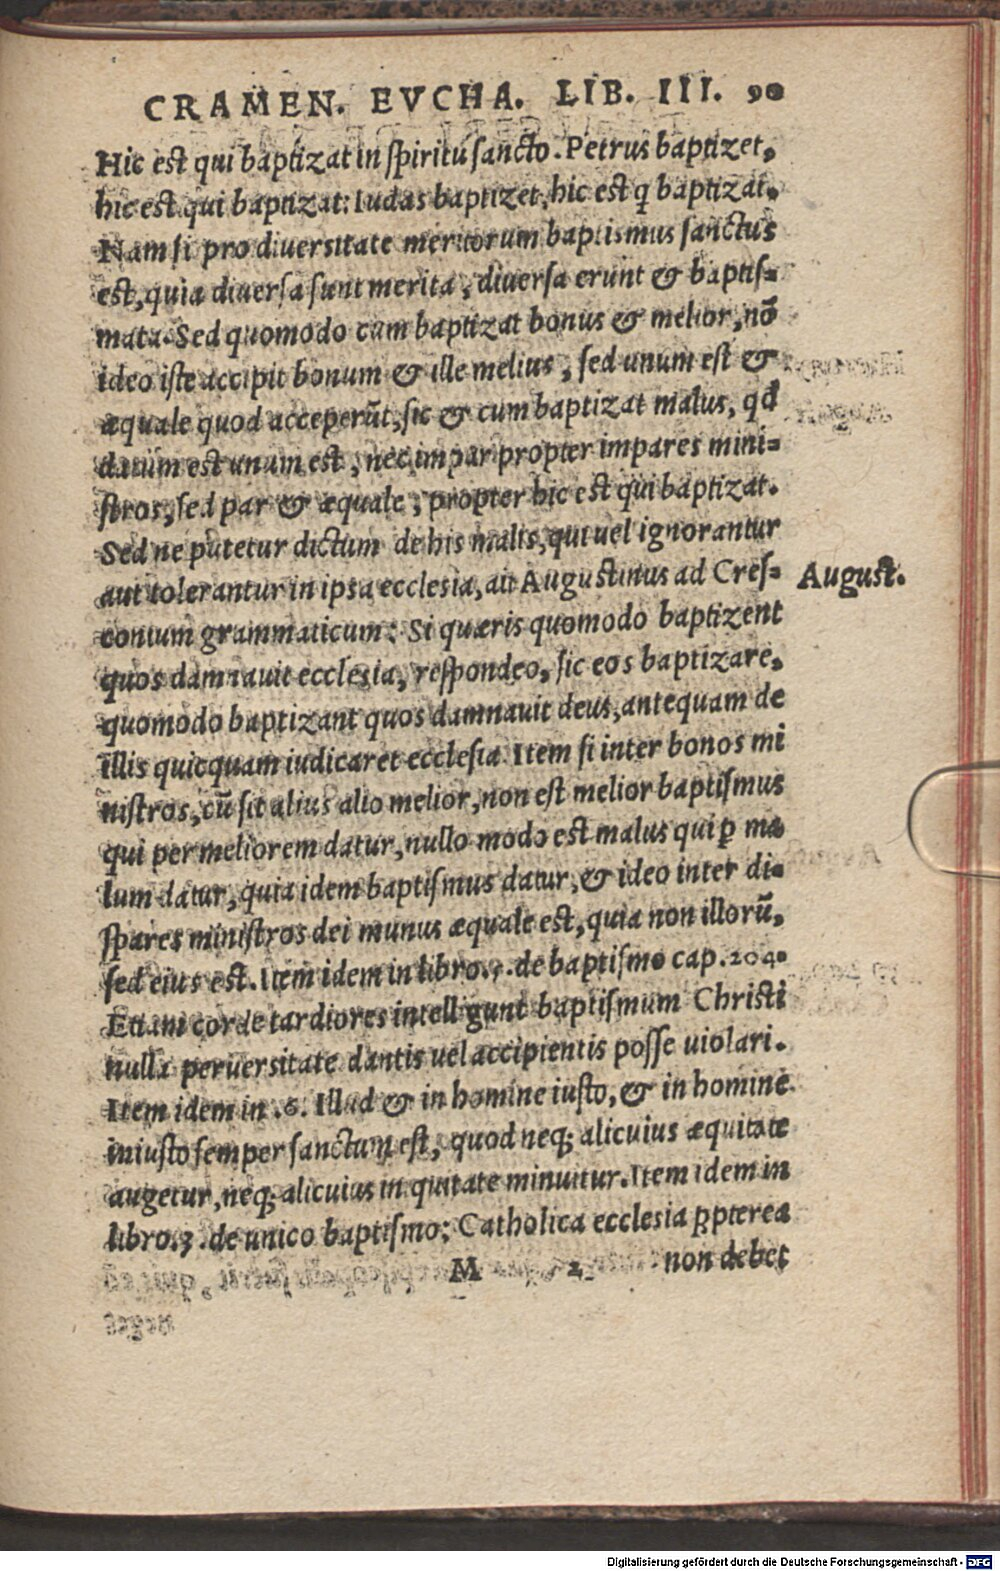 CRAMEN. EVCHA. LIB. III. 90
Hic est qui baptizat in spiritu sancto. Petrus baptizet,
hic est qui baptizat: Iudas baptizet, hic est q̃ baptizat.
Nam si pro diuersitate meritorum baptismus sanctus
est, quia diuersa sunt merita, diuersa erunt & baptis-
mata. Sed quomodo cum baptizat bonus & melior, nō
ideo iste accipit bonum & ille melius, sed unum est &
æquale quod acceperūt, sic & cum baptizat malus, qd̃
datum est unum est, nec impar propter impares mini-
stros, sed par & æquale, propter hic est qui baptizat.
Sed ne putetur dictum de his malis, qui uel ignorantur
aut tolerantur in ipsa ecclesia, ait Augustinus ad Cres-
August.
conium grammaticum: Si quæris quomodo baptizent
quos damnauit ecclesia, respondeo, sic eos baptizare,
quomodo baptizant quos damnauit deus, antequam de
illis quicquam iudicaret ecclesia. Item si inter bonos mi
nistros, cū sit alius alio melior, non est melior baptismus
qui per meliorem datur, nullo modo est malus qui ꝑ ma
lum datur, quia idem baptismus datur, & ideo inter di-
spares ministros dei munus æquale est, quia non illorū,
sed eius est. Item idem in libro. de baptismo cap. 204.
Etiam corde tardiores intelligunt baptismum Christi
nulla peruersitate dantis uel accipientis posse uiolari.
Item idem in .6. Illud & in homine iusto, & in homine
iniusto semper sanctum est, quod neq; alicuius æquitate
augetur, neq; alicuius iniquitate minuitur. Item idem in
libro.3. de unico baptismo: Catholica ecclesia ꝓpterea
M 2 non debet